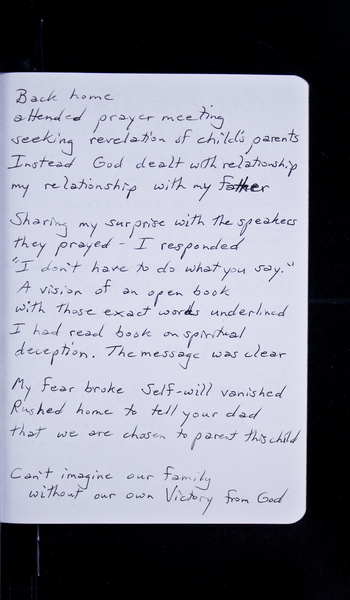 Back home
attended prayer meeting
seeking revelation of child's parents
Instead God dealt with relationship
my relationship with my father
Sharing my surprise with the speakers
they prayed - I responded
"I don't have to do what you say."
A vision of an open book
with those exact words underlined
I had read book on spiritual
deception. The message was clear
My fear broke Self-will vanished
Rushed home to tell your dad
that we are chosen to parent this child
Can't imagine our family
without our own Victory from God